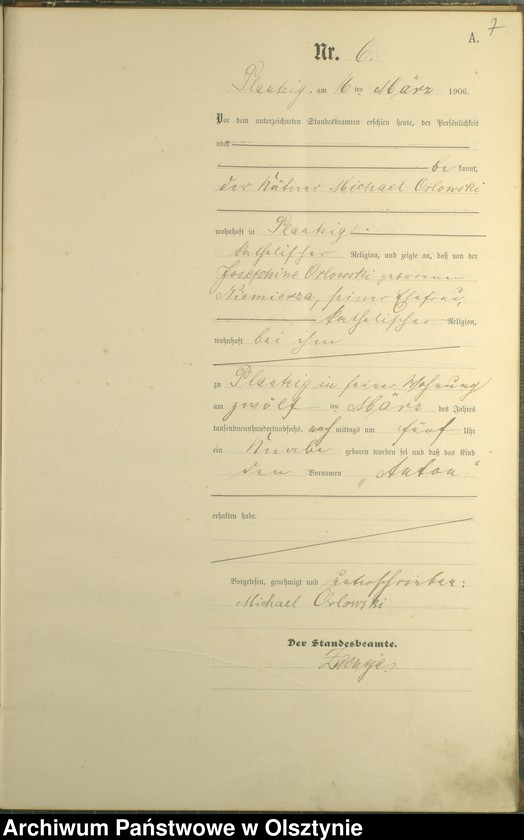 A. 7
Nr. 6.
Plautzig, am ten März 1906.
Vor dem unterzeichneten Standesbeamten erschien heute, der Persönlichkeit
nach
be kannt,
der Kätner Michael Orlowski
wohnhaft in Plautzig
katholischer Religion, und zeigte an, daß von der
Josephine Orlowski geborenen
Niemierza, seiner Ehefrau,
katholischer Religion,
wohnhaft bei ihm
zu Plautzig in seiner Wohnung
am zwölf ten März des Jahres
tausendneunhundertundsechs, nach mittags um fünf Uhr
ein Knabe geboren worden sei und daß das Kind
den Vornamen „Anton"
erhalten habe.
Vorgelesen, genehmigt und unterschrieben:
Michael Orlowski
Der Standesbeamte.
Archiwum Państwowe w Olsztynie